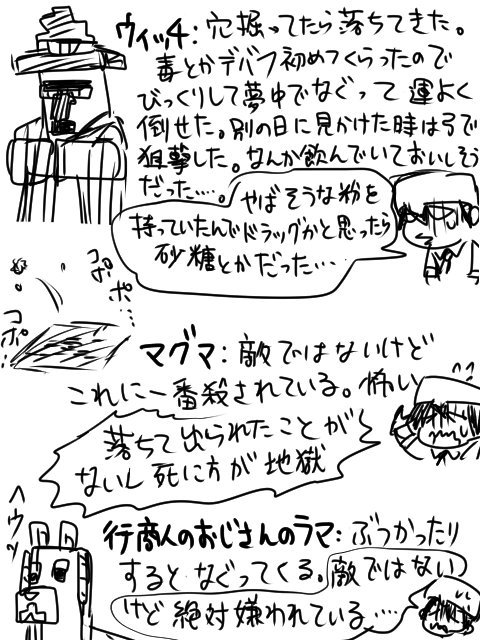 ウィッチ:穴掘ってたら落ちてきた。
毒とかデバフ初めてくらったので
びっくりして夢中でなぐって運よく
倒せた。別の日に見かけた時は弓で
狙撃した。なんか飲んでいておいしそう
だった……。
やばそうな粉を
持っていたんでドラッグかと思ったら
砂糖とかだった…
コポ
ポ…
コポ…
マグマ:敵ではないけど
これに一番殺されている。怖い
落ちて出られたことが
ないし死に方が地獄
ペウッ
行商人のおじさんのラマ:ぶつかったり
するとなぐってくる。敵ではない
けど絶対嫌われている……